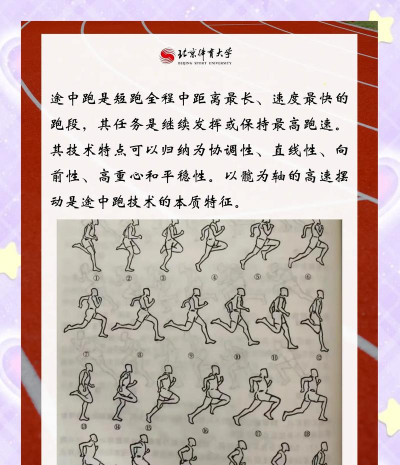 北京体育大学
BEIJING SPORT UNIVERSITY
途中跑是短跑全程中距离最长、速度最快的
跑段，其任务是继续发挥或保持最高跑速。
其技术特点可以归纳为协调性、直线性、向
前性、高重心和平稳性。以髋为轴的高速摆
动是途中跑技术的本质特征。
① ② ③ ④ ⑤ ⑥
⑦ ⑧ ⑨ ⑩ ⑪ ⑫
⑬ ⑭ ⑮ ⑯ ⑰ ⑱